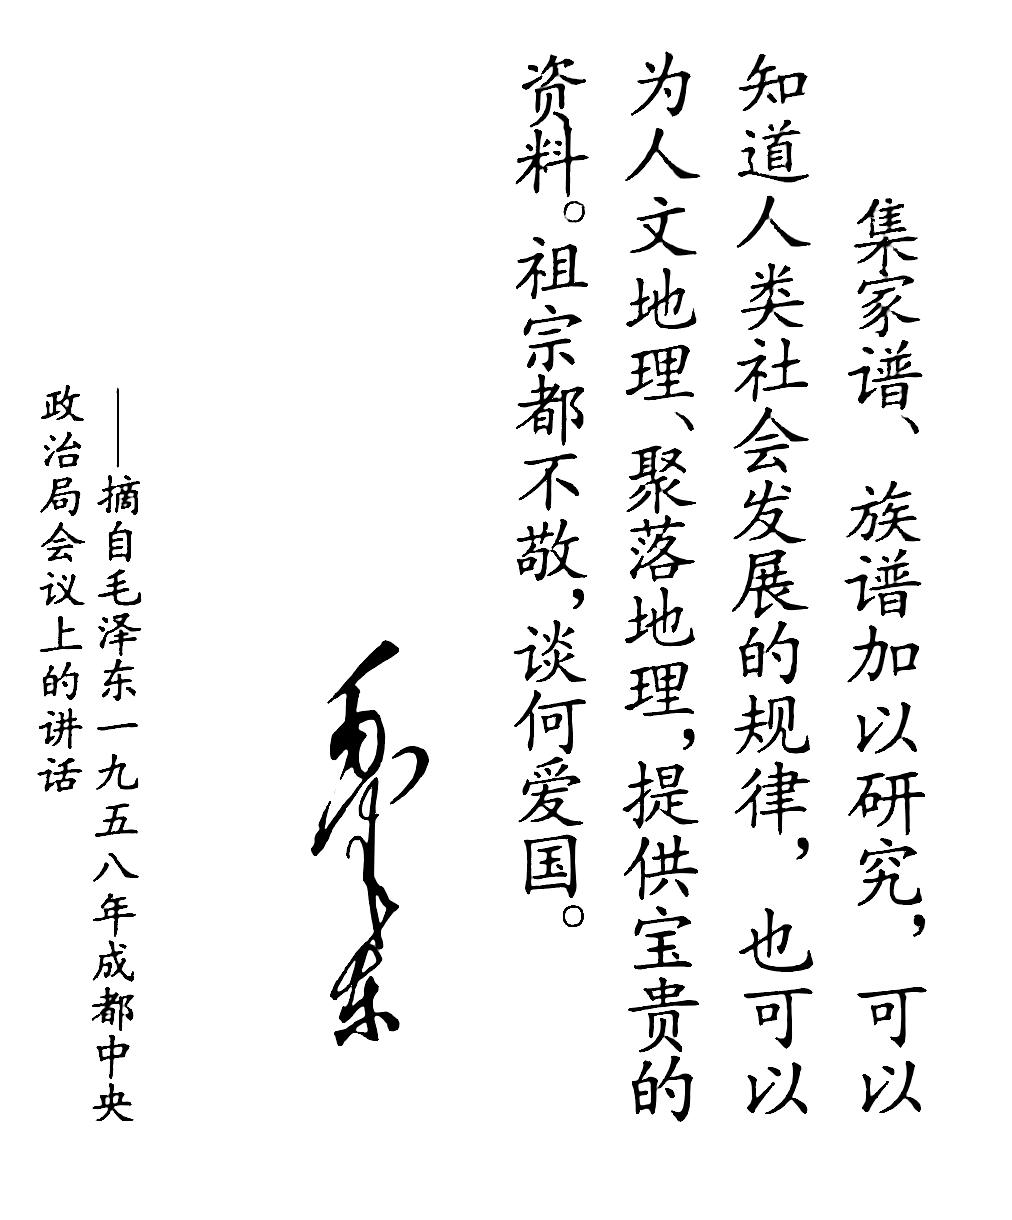 集家谱、族谱加以研究，可以
知道人类社会发展的规律，也可以
为人文地理、聚落地理，提供宝贵的
资料。祖宗都不敬，谈何爱国。
毛泽东
——摘自毛泽东一九五八年成都中央
政治局会议上的讲话